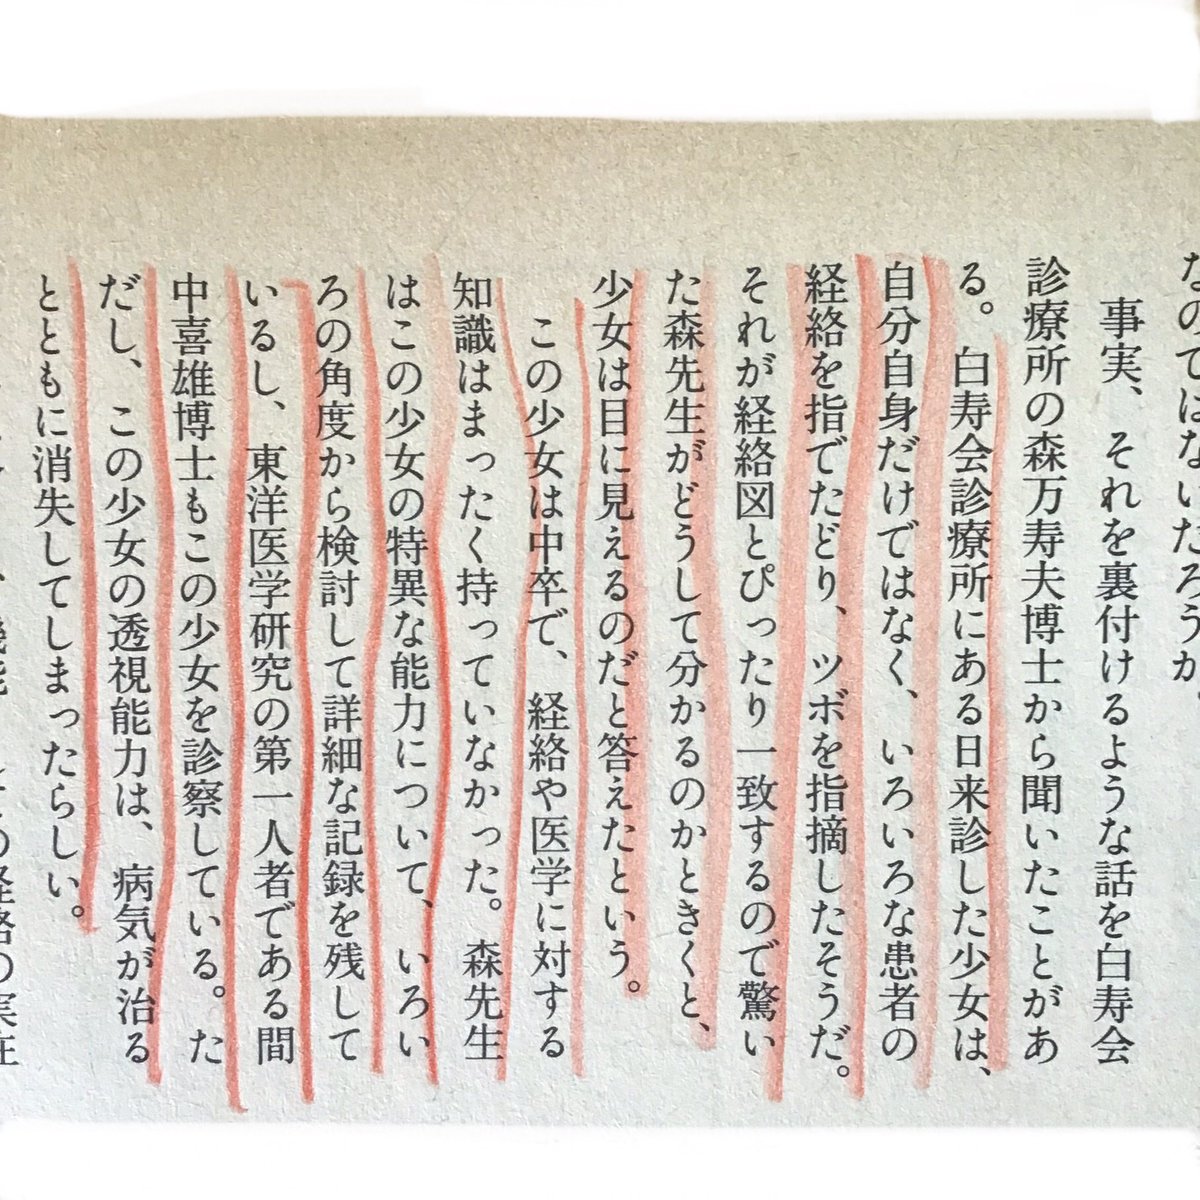 なのではないだろうか
事実、それを裏付けるような話を白寿会
診療所の森万寿夫博士から聞いたことがあ
る。白寿会診療所にある日来診した少女は、
自分自身だけではなく、いろいろな患者の
経絡を指でたどり、ツボを指摘したそうだ。
それが経絡図とぴったり一致するので驚い
た森先生がどうして分かるのかときくと、
少女は目に見えるのだと答えたという。
この少女は中卒で、経絡や医学に対する
知識はまったく持っていなかった。森先生
はこの少女の特異な能力について、いろい
ろの角度から検討して詳細な記録を残して
いるし、東洋医学研究の第一人者である間
中喜雄博士もこの少女を診察している。た
だし、この少女の透視能力は、病気が治る
とともに消失してしまったらしい。
の経絡の実在